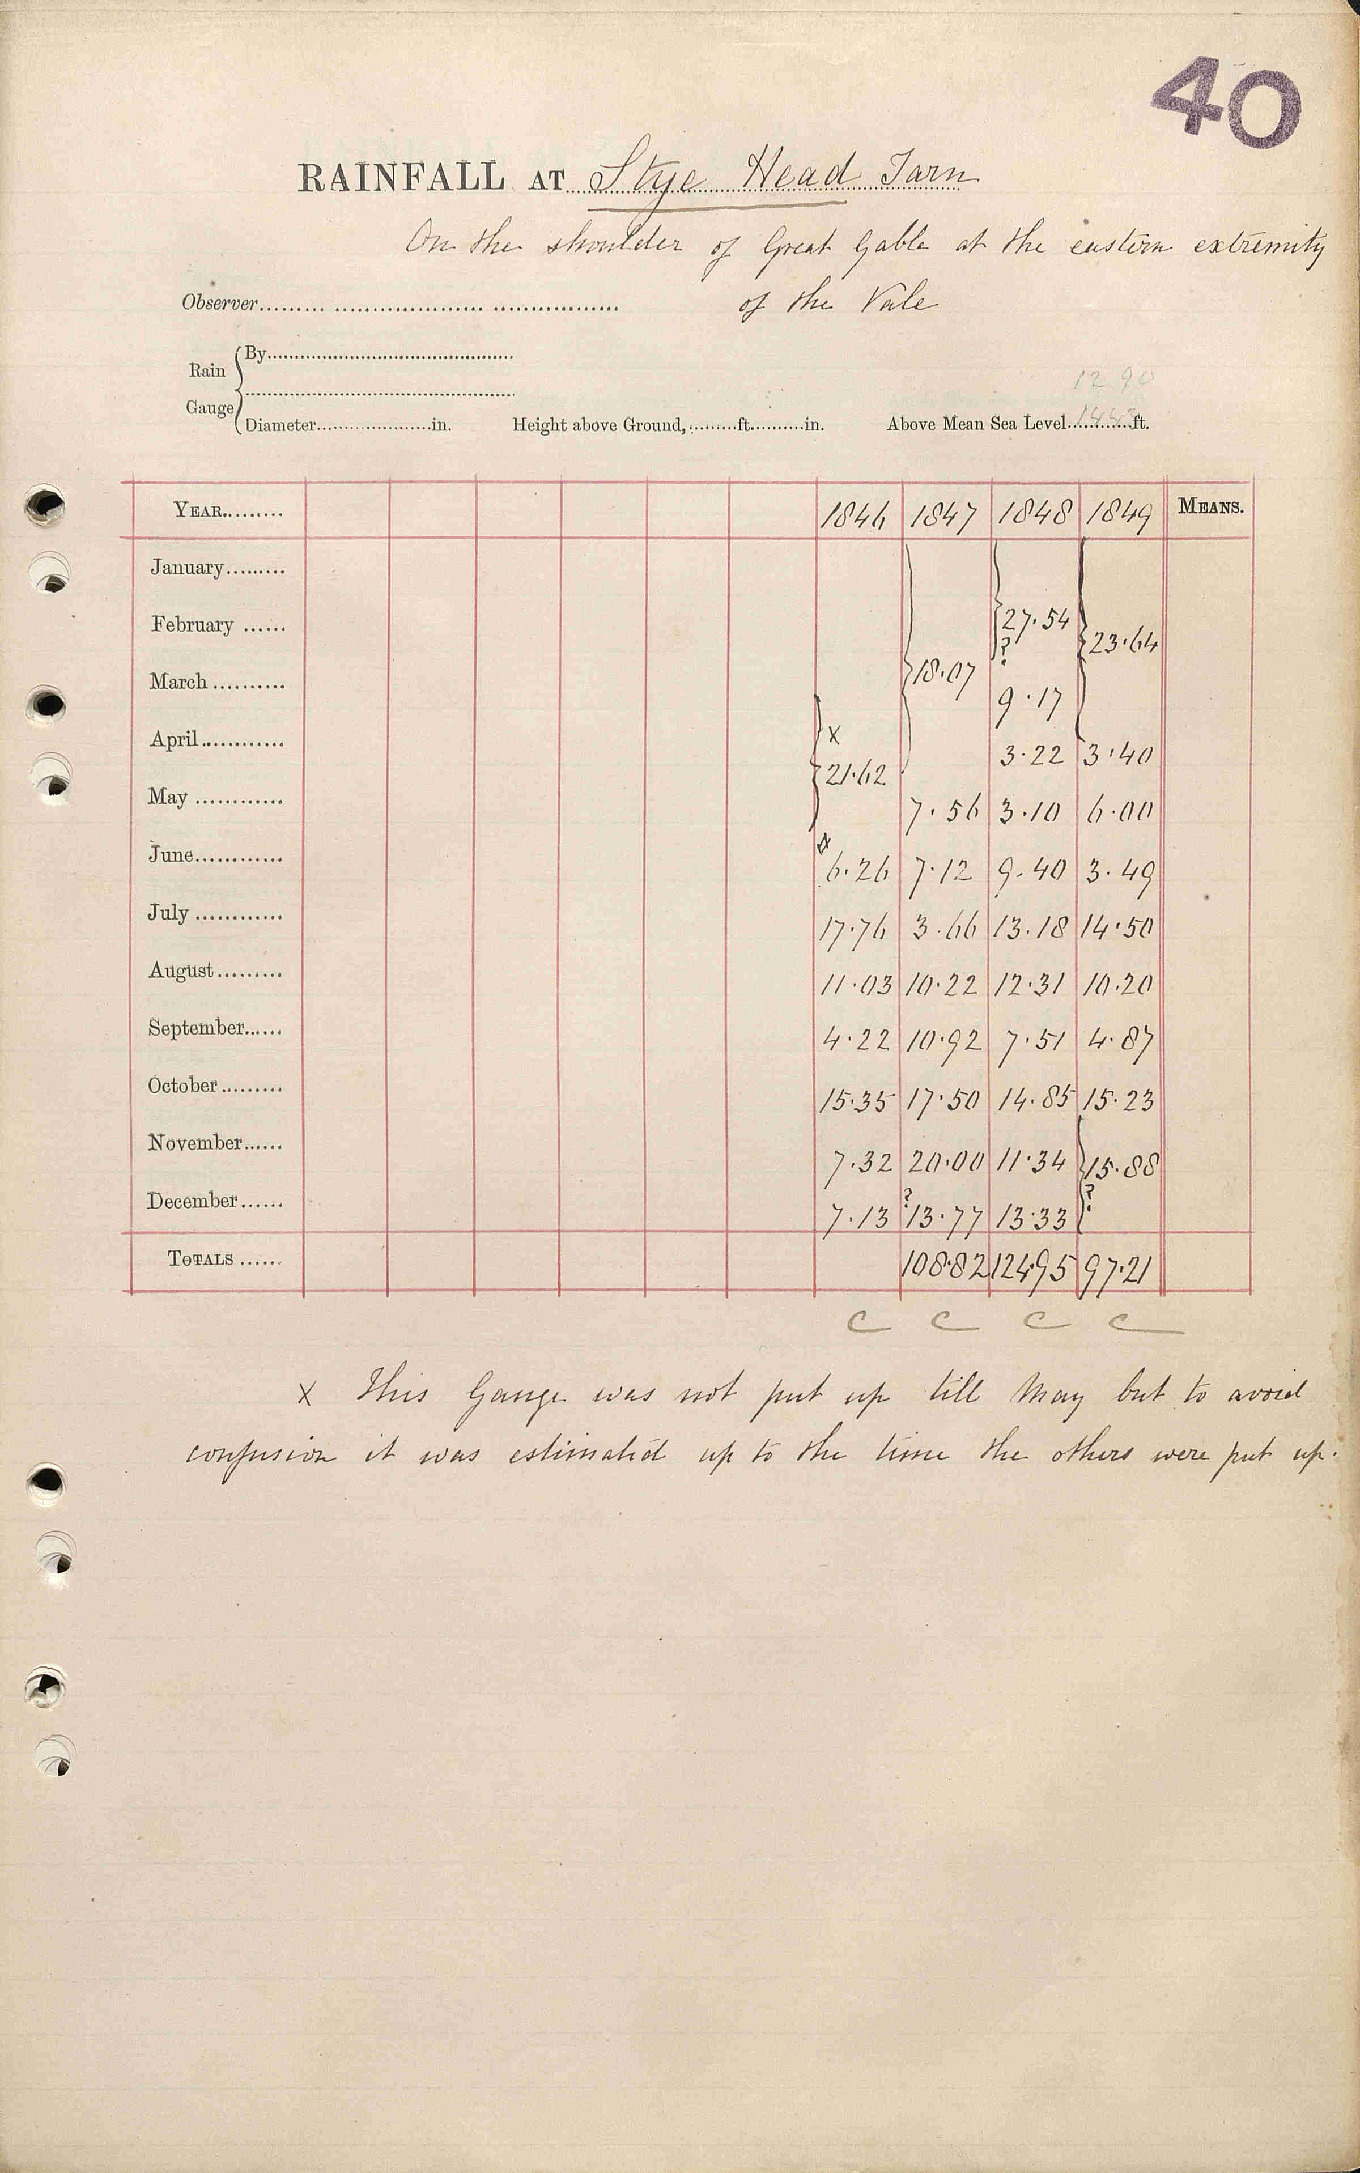 40
RAINFALL AT Stye Head Tarn
On the shoulder of Great Gable at the eastern extremity
of the Vale
Observer
Rain Gauge
By
Diameter in. Height above Ground, ft. in. Above Mean Sea Level ft.
1290
YEAR 1846 1847 1848 1849 MEANS.
January
February 27.54 23.64
?
March 18.07 9.17
April x 3.22 3.40
21.62
May 7.56 3.10 6.00
June x 6.26 7.12 9.40 3.49
July 17.76 3.66 13.18 14.50
August 11.03 10.22 12.31 10.20
September 4.22 10.92 7.51 4.87
October 15.35 17.50 14.85 15.23
November 7.32 20.00 11.34 15.88
? ?
December 7.13 13.77 13.33
TOTALS 108.82 124.95 97.21
C C C C
x This Gauge was not put up till May but to avoid
confusion it was estimated up to the time the others were put up.